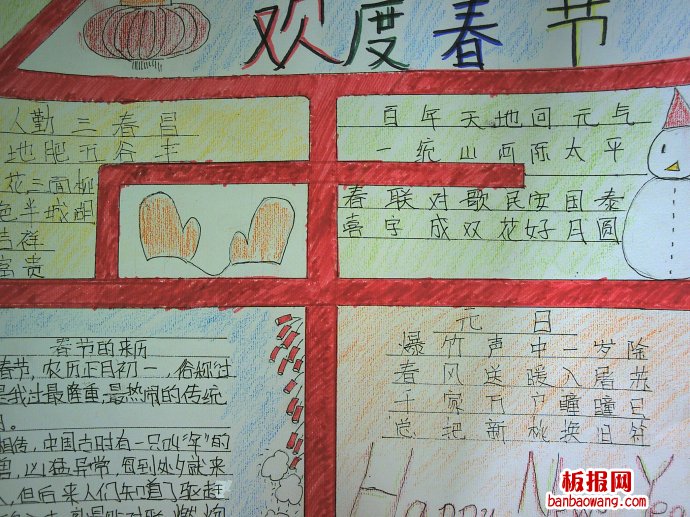 欢度春节
人勤三春早
地肥五谷丰
花三面柳
色半城湖
吉祥
富贵
百年天地回元气
一统山河际太平
春联对歌民安国泰
喜字成双花好月圆
春节的来历
春节,农历正月初一,俗称过
是我过最隆重,最热闹的传统
相传,中国古时有一只叫“年”的
兽,凶猛异常,每到除夕就来
但后来人们知道了驱赶
元日
爆竹声中一岁除
春风送暖入屠苏
千家万户曈曈日
总把新桃换旧符
Happy New Yea
板报网
banbaowang.com